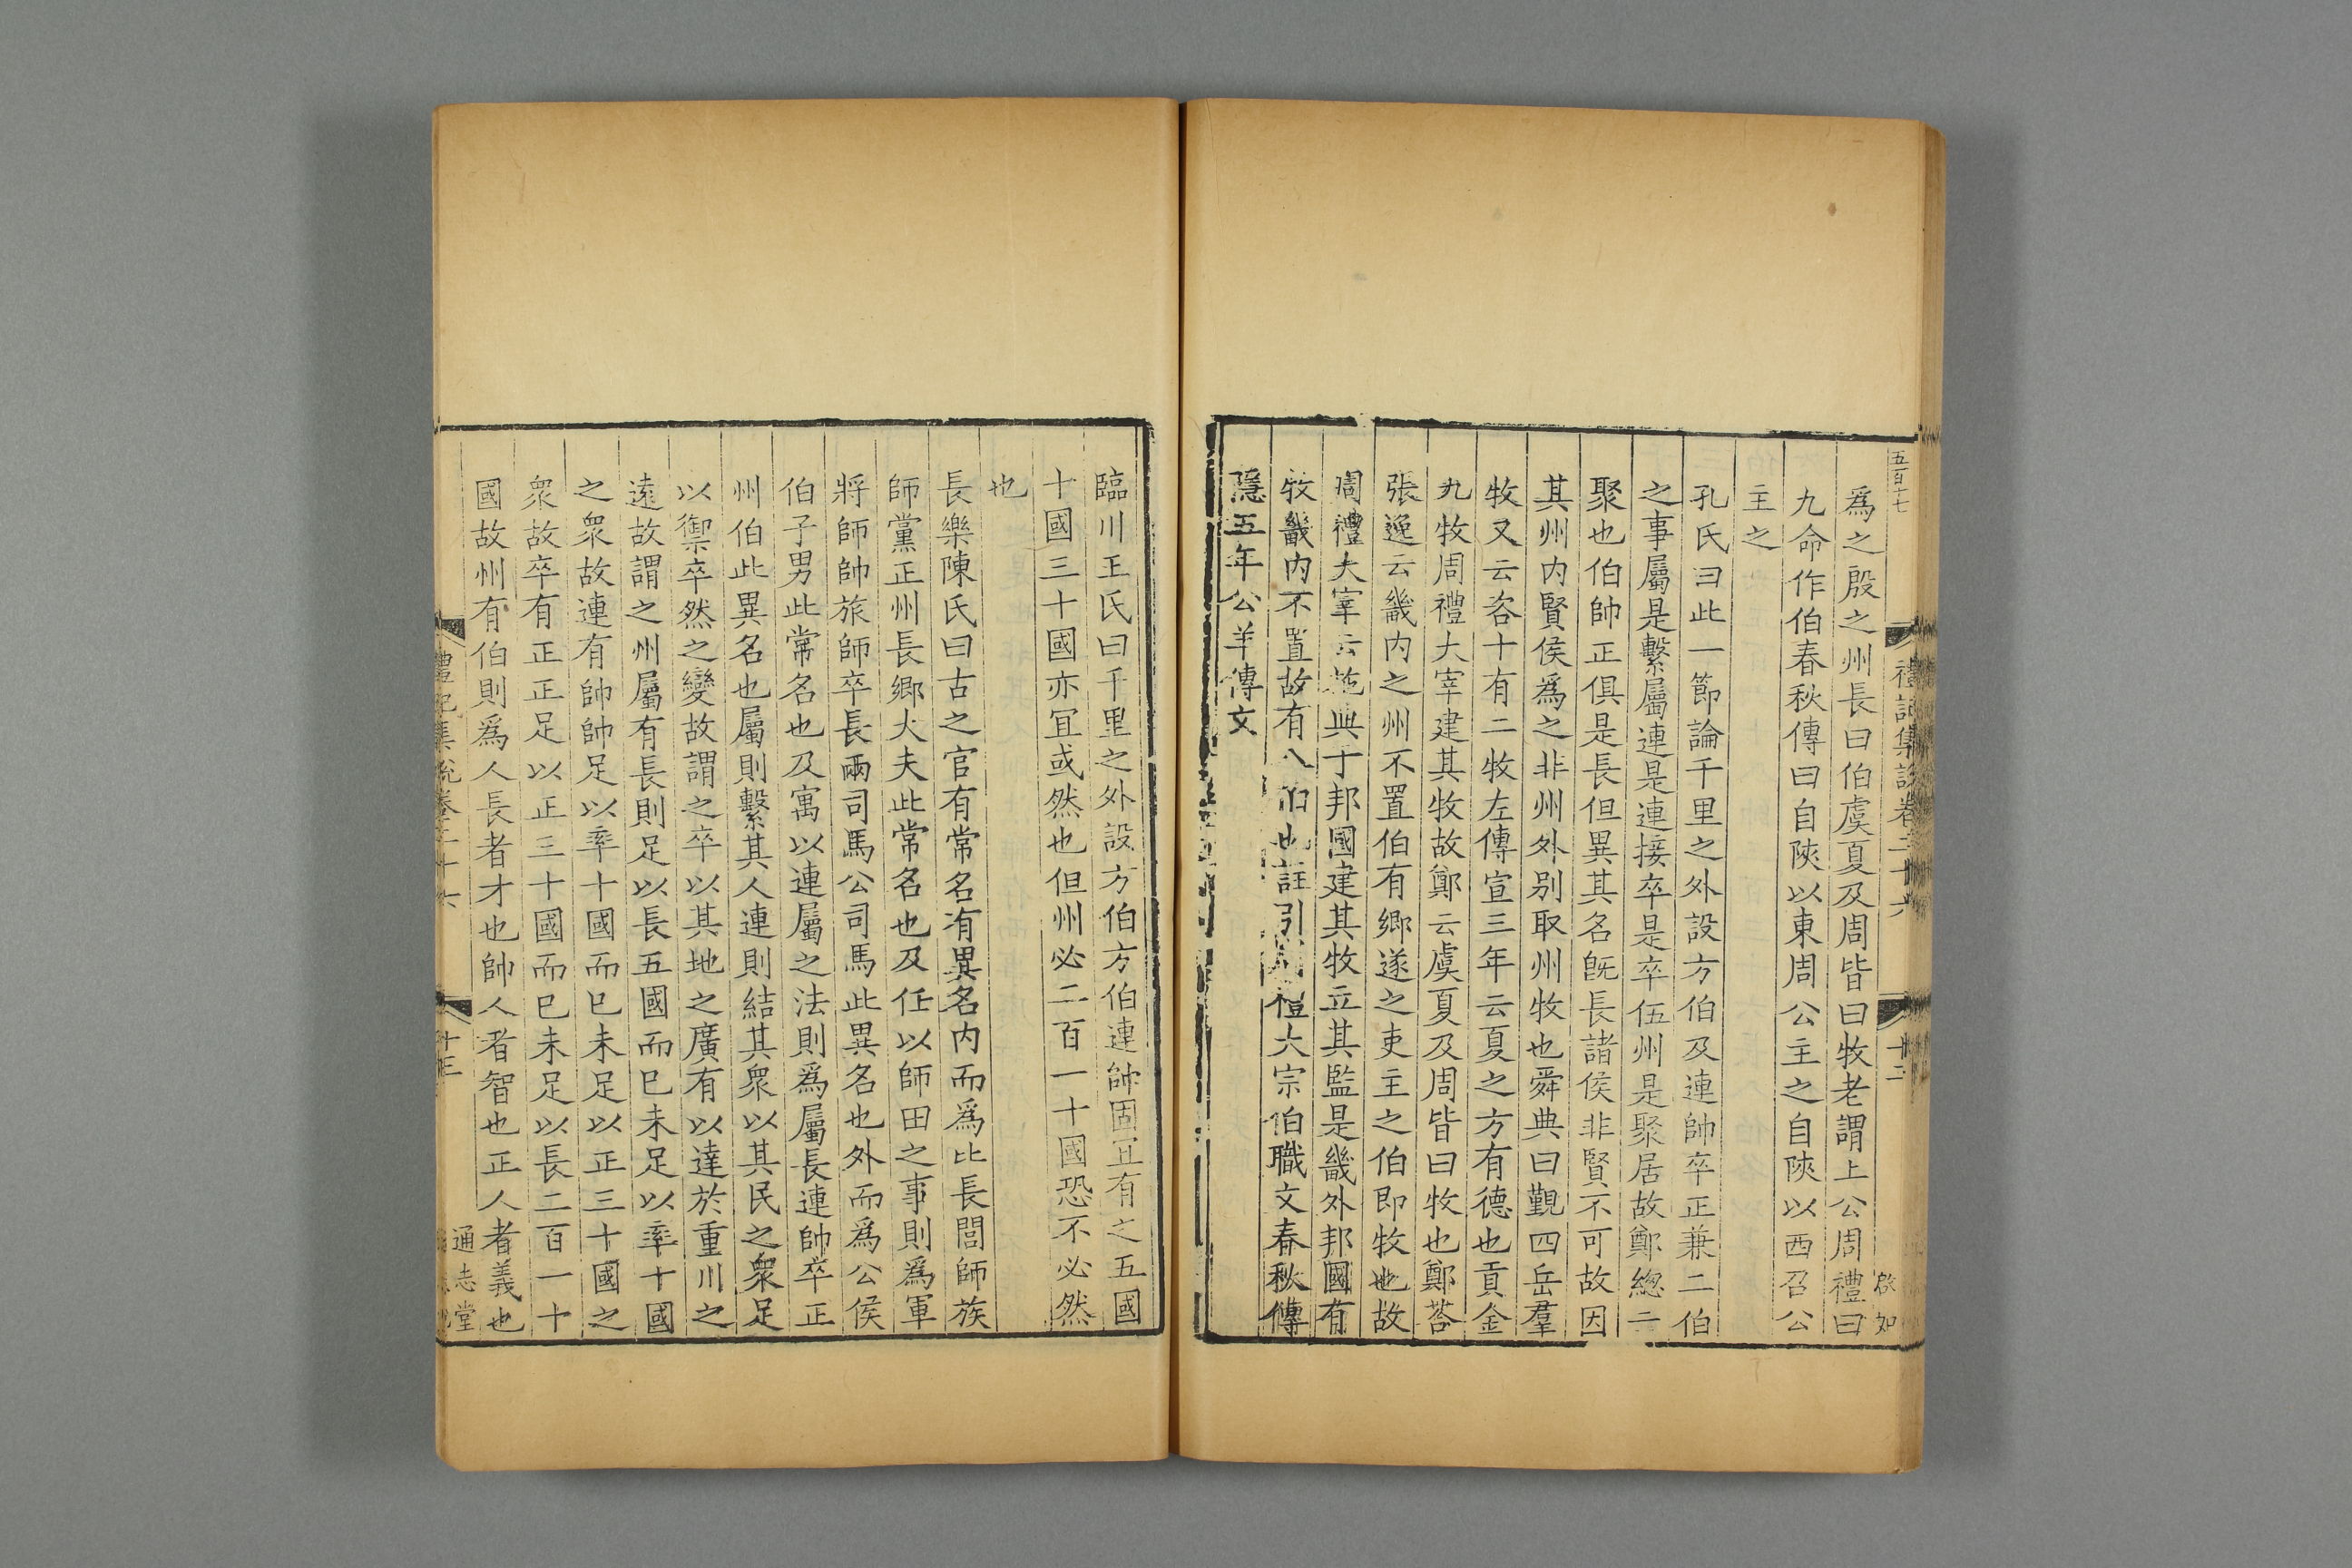 五百十七
禮記集說卷二十六
十二
啟如
為之殷之州長曰伯虞夏及周皆曰牧老謂上公周禮曰
九命作伯春秋傳曰自陝以東周公主之自陝以西召公
主之
孔氏曰此一節論千里之外設方伯及連帥卒正兼二伯
之事屬是繫屬連是連接卒是卒伍州是聚居故鄭緫云
聚也伯帥正俱是長但異其名旣長諸侯非賢不可故因
其州內賢侯爲之非州外別取州牧也舜典曰覲四岳羣
牧又云咨十有二牧左傳宣三年云夏之方有德也貢金
九牧周禮大宰建其牧故鄭云虞夏及周皆曰牧也鄭荅
張逸云畿內之州不置伯有鄉遂之吏主之伯即牧也故
周禮大宰云施典于邦國建其牧立其監是畿外邦國有
牧畿內不置故有八伯也註引周禮大宗伯職文春秋傳
隱五年公羊傳文
臨川王氏曰千里之外設方伯方伯連帥固宜有之五國
十國三十國亦宜或然也但州必二百一十國恐不必然
也
長樂陳氏曰古之官有常名有異名內而爲比長閭師族
師黨正州長鄉大夫此常名也及任以師田之事則爲軍
將師帥旅師卒長兩司馬公司馬此異名也外而爲公侯
伯子男此常名也及寓以連屬之法則爲屬長連帥卒正
州伯此異名也屬則繫其人連則結其衆以其民之衆足
以禦卒然之變故謂之卒以其地之廣有以達於重川之
遠故謂之州屬有長則足以長五國而已未足以率十國
之衆故連有帥帥足以率十國而已未足以正三十國之
衆故卒有正正足以正三十國而已未足以長二百一十
國故州有伯則爲人長者才也帥人者智也正人者義也
禮記集說卷二十六
十三
通志堂